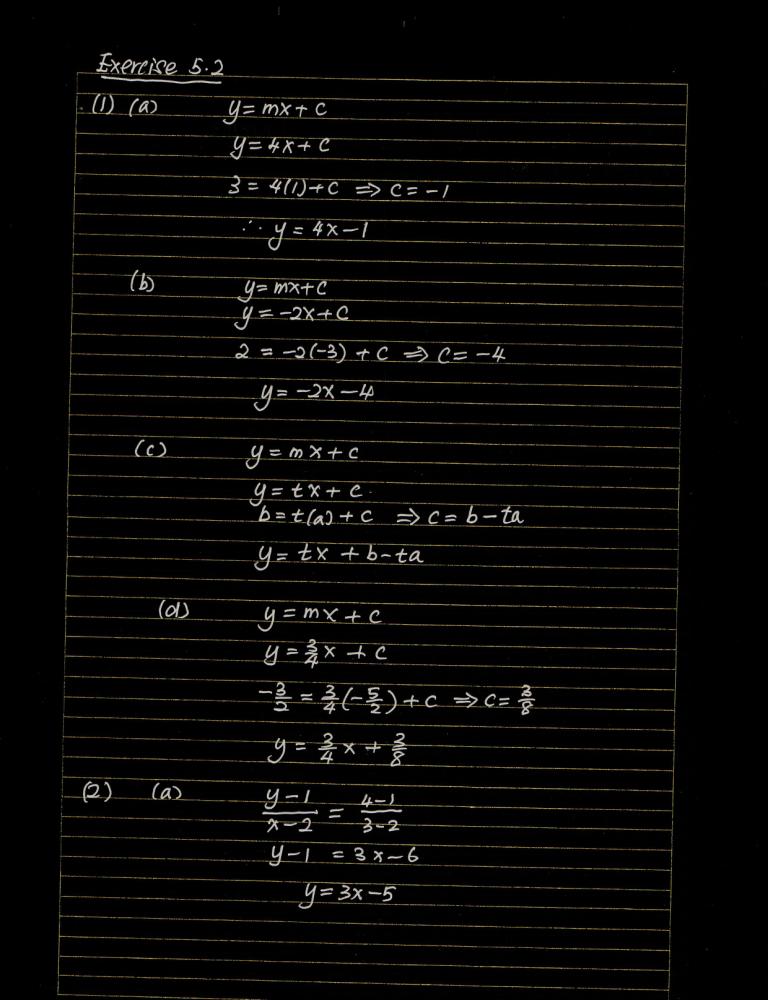 Exercise 5.2
(1) (a) y = mx + c
y = 4x + c
3 = 4(1) + c ⇒ c = -1
∴ y = 4x - 1
(b) y = mx + c
y = -2x + c
2 = -2(-3) + c ⇒ c = -4
y = -2x - 4
(c) y = mx + c
y = tx + c
b = t(a) + c ⇒ c = b - ta
y = tx + b - ta
(d) y = mx + c
y = 3/4 x + c
-3/2 = 3/4 (-5/2) + c ⇒ c = 3/8
y = 3/4 x + 3/8
(2) (a) (y - 1)/(x - 2) = (4 - 1)/(3 - 2)
y - 1 = 3x - 6
y = 3x - 5